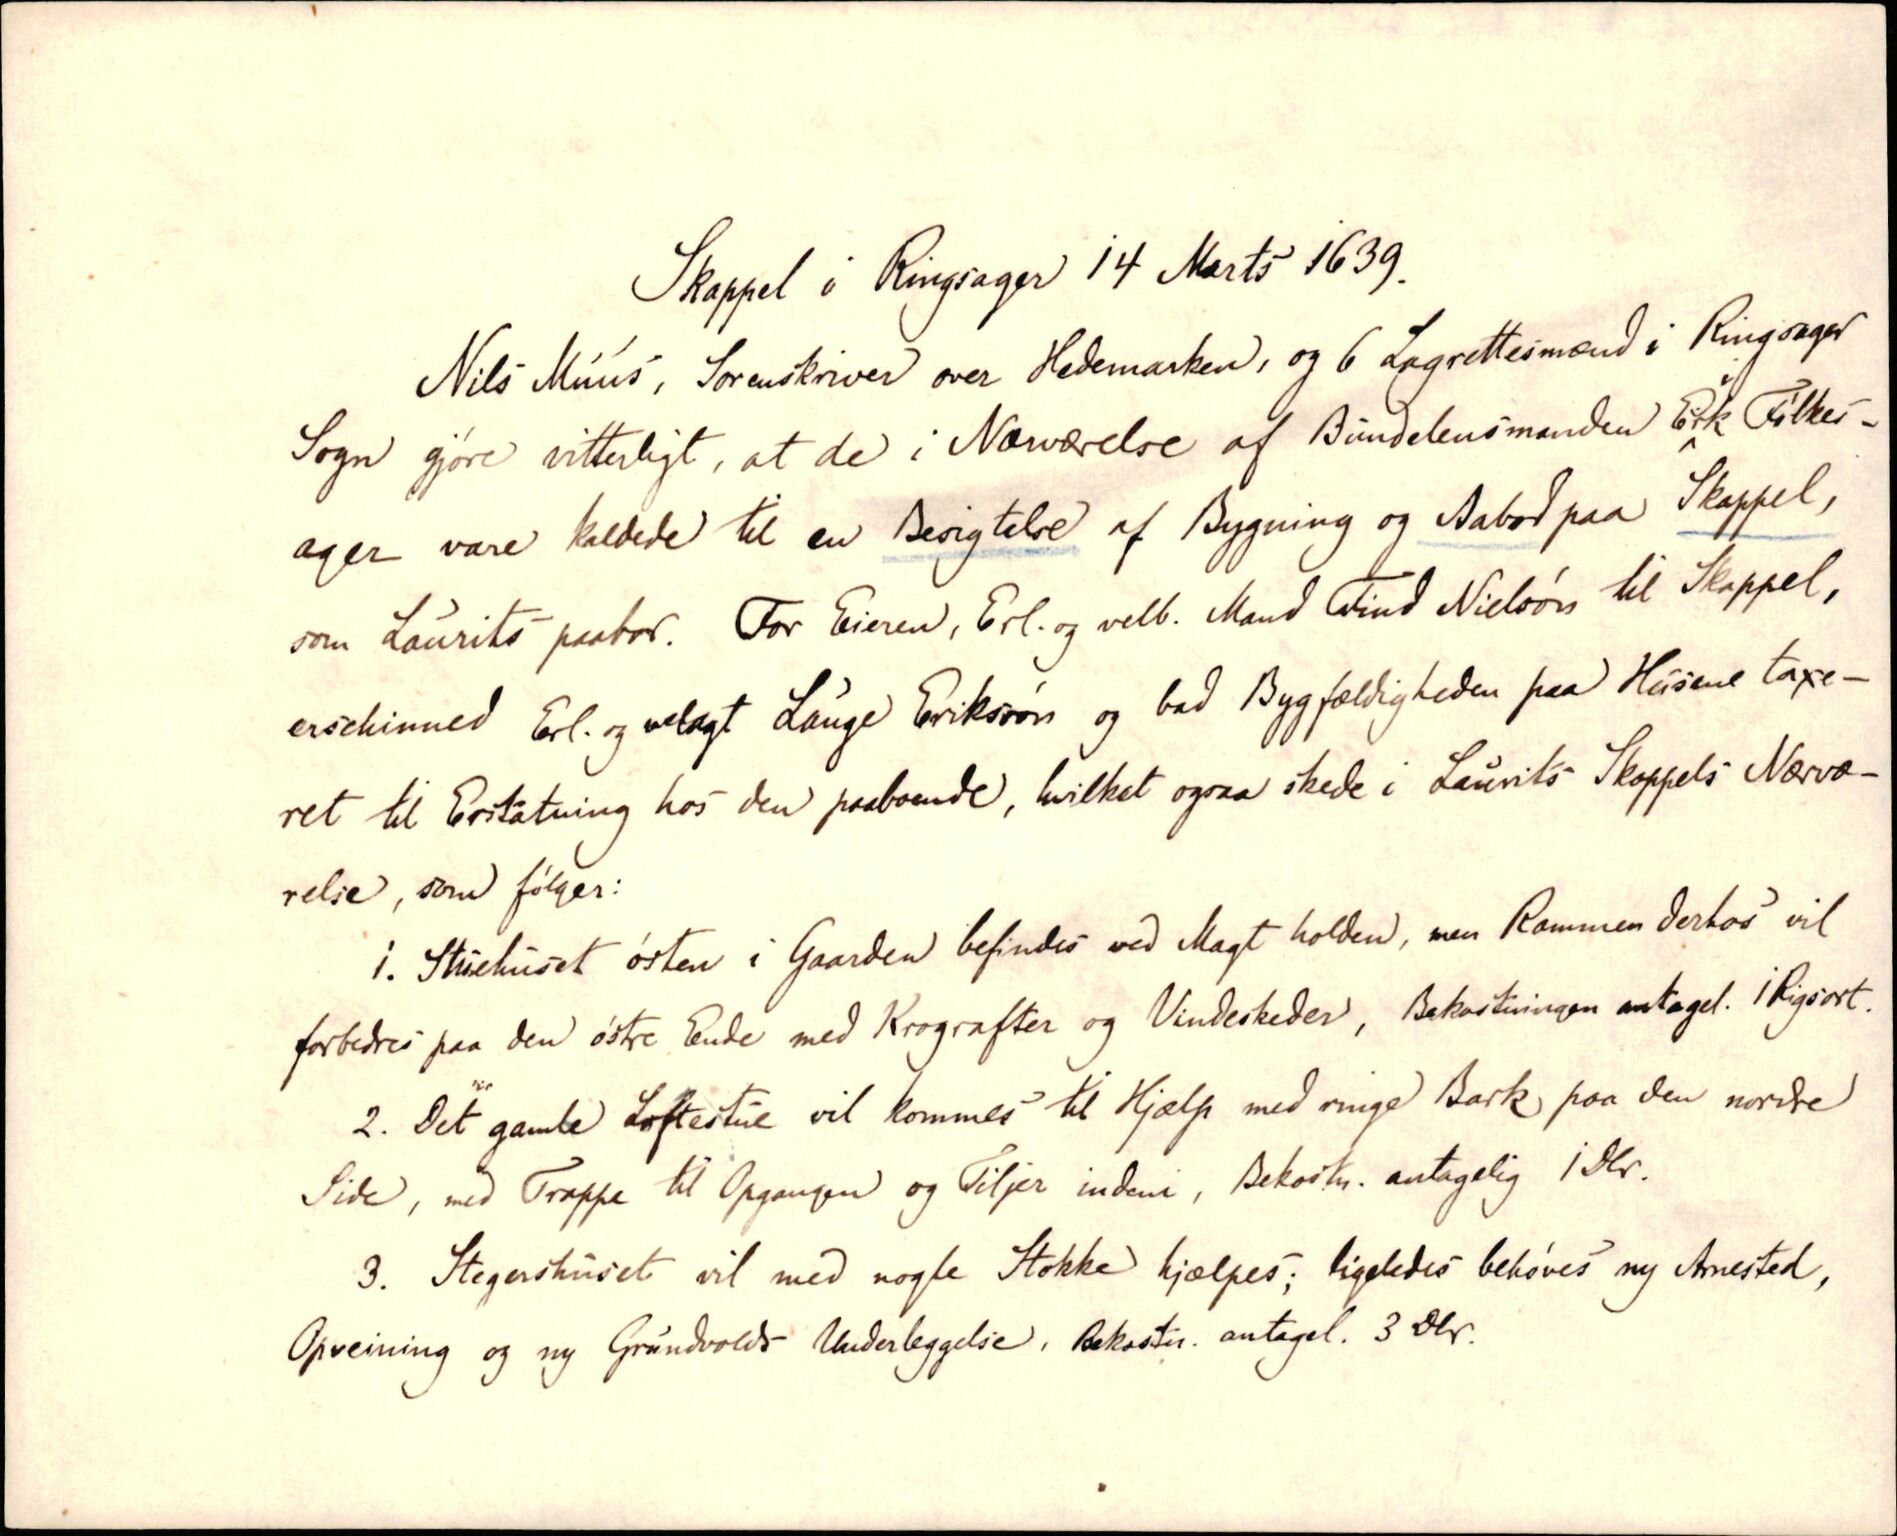 Skappel i Ringsager 14 Marts 1639.
Nils Muus, Sorenskriver over Hedemarken, og 6 Lagrettesmænd i Ringsager
Sogn gjøre vitterligt, at de i Nærværelse af Bundelensmanden Eirik Fulkes-
ager vare kaldede til en Besigtelse af Bygning og Aabod paa Skappel,
som Laurits paabor. For Eieren, Erl. og velb. Mand Find Nielsøn til Skappel,
erschinned Erl. og velagt Lauge Eriksøn og bad Bygfældigheden paa Husene taxe-
ret til Erstatning hos den paaboende, hvilket ogsaa skede i Laurits Skappels Nærvæ-
relse, som følger:
1. Stuehuset østen i Gaarden befindes ved Magt holden, men Rammen derhos vil
forbedres paa den østre Ende med Krografter og Vindeskeder, Bekostningen antagel. 1 Rigsort.
2. Det gamle Loftestue vil kommes til Hjælp med ringe Bark paa den nordre
Side, med Trappe til Opgangen og Tiljer indeni, Bekostn. antagelig 1 Dlr.
3. Stegershuset vil med nogle Stokke hjælpes; ligeledes behøves ny Arnested,
Opveining og ny Grundvolds Underleggelse, Bekostn. antagel. 3 Dlr.